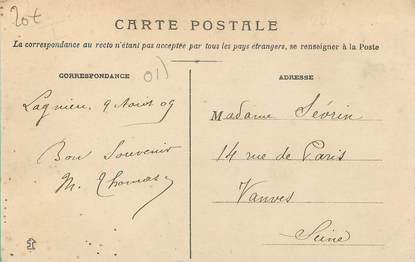 20t
CARTE POSTALE
La correspondance au recto n'étant pas acceptée par tous les pays étrangers, se renseigner à la Poste
CORRESPONDANCE
01)
Lagnieu, 9 Août 09
Bon Souvenir
M. Thomas
ADRESSE
Madame Sévrin
14 rue de Paris
Vanves
Seine